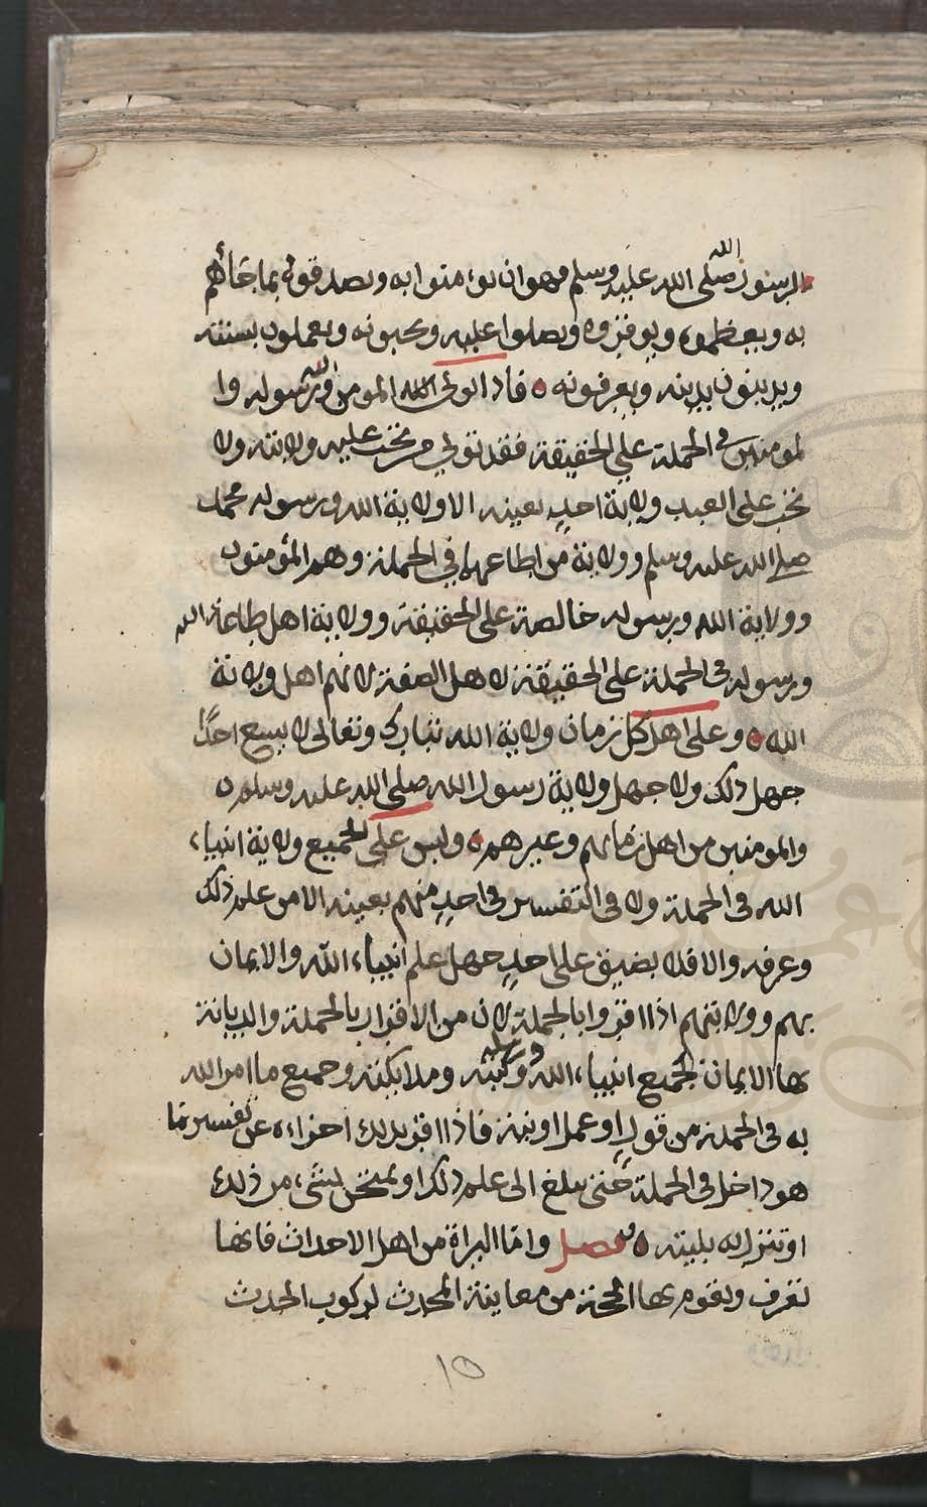 الرسول صلى الله عليه وسلم فهو ان يؤمنوا به ويصدقوه بما جاءهم
به ويعظموه ويوقروه ويصلوا عليه ويحبونه ويعملون بسنته
ويدينون بدينه ويعرفونه ه فاذا تولى المؤمن الله ورسوله وا
لمومنين في الجملة على الحقيقة فقد تولى من تجب عليه ولايته ولا
تجب على العبد ولاية احد بعينه الا ولاية الله ورسوله محمد
صلى الله عليه وسلم وولاية من اطاعهما في الجملة وهم المؤمنون
وولاية الله ورسوله خالصة على الحقيقة وولاية اهل طاعة الله
ورسوله في الجملة على الحقيقة لاهل الصفة لانهم اهل ولاية
الله ه وعلى اهل كل زمان ولاية الله تبارك وتعالى لا يسع احدًا
جهل ذلك ولا جهل ولاية رسول الله صلى الله عليه وسلم ه
والمومنين من اهل زمانهم وغيرهم ه وليس على الجميع ولاية انبياء
الله في الجملة ولا في التفسير في احد منهم بعينه الا من علم ذلك
وعرفه والا فلا يضيق على احد جهل علم انبياء الله والايمان
بهم وولايتهم اذا اقروا بالجملة لان من الاقرار بالجملة والديانة
بها الايمان بجميع انبياء الله وكتبه ورسله وملايكته وجميع ما امر الله
به في الجملة من قول او عمل او نية فاذا اقر بذلك اجزاه عن تفسير ما
هو داخل في الجملة حتى يبلغ الى علم ذلك او يمتحن بشيء من ذلك
او تنزل به بليته ه فصل واما البراة من اهل الاحداث فانها
تعرف وتقوم بها الحجة من معاينة المحدث لركوب الحدث
١٥